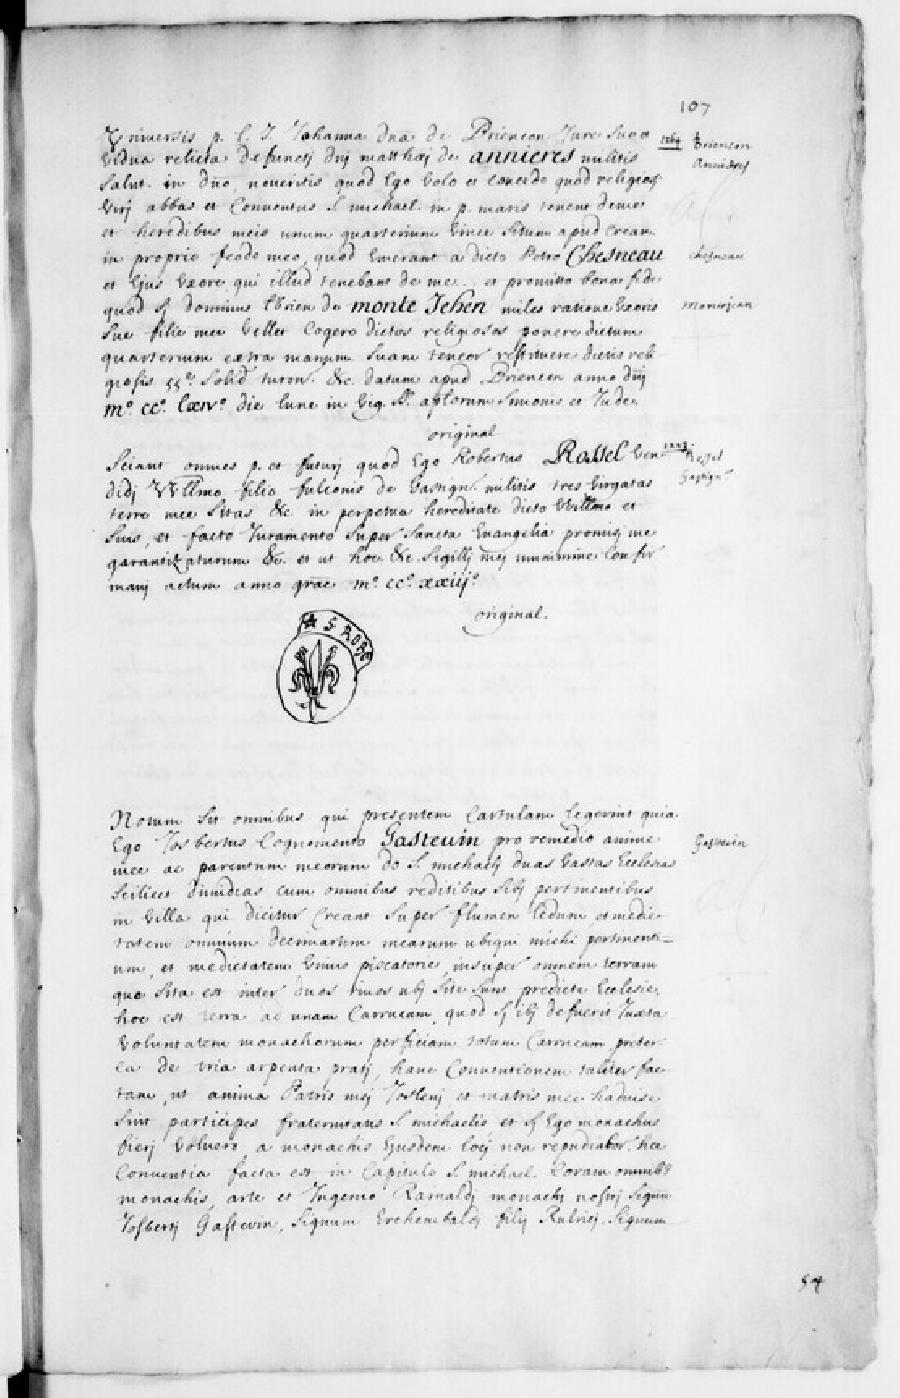 107
Universis p. l. J. Johanna dna de Briencon Jure suo
1264 Briencon
vidua relicta defuncti dnj matthæj de annieres militis
Annieres
salut. in dno, noveritis quod Ego volo et concedo quod religiosi
virj abbas et Conventus S. michael. in p. maris tenent deme
et heredibus meis unum quarterium vinee situm apud Crean
in proprio feodo meo, quod Emerant a dicto Petro Chesneau
chesneau
et Ejus Uxore qui illud tenebant de me... et promitto bona fide
quod sj dominus Ebrien de monte Jehen miles ratione Uxoris
Montejean
sue filie mee vellet Cogere dictos religiosos ponere dictum
quarterium extra manum suam teneor restituere dictis reli-
giosis 55º. Solid turon. &c. datum apud Briencon anno dnj
mº. ccº. lxivº. die lune in vig. SS. aplorum Simonis et Jude.
original
Sciant omnes p. et futurj quod Ego Robertus Rossel ven
1223 Rossel
didj Wllmo filio fulconis de Gastign. militis tres virgatas
Gastign.
terre mee sitas &c. in perpetua hereditate dicto Willmo et
suis, et facto Juramento super Sancta Evangelia promisj me
garantizaturum &c. et ut hoc &c. Sigillj mej munimine Confir
mavj actum anno græ mº. ccº. xxiijº
original.
S ROBE
Notum sit omnibus qui presentem Cartulam legerint quia
Ego Josbertus Cognomento Gasteuin pro remedio anime
Gasteuin
mee ac parentum meorum do S. michaelj duas vastas Ecclesias
scilicet dimidias cum omnibus reditibus sibj pertinentibus
in villa qui dicitur Creant super flumen ledum et medie-
tatem omnium decimarum mearum ubiqui michi pertinenti=
um, et medietatem unius piscatorie, insuper omnem terram
que sita est inter duos rivos ubj site sunt predicte Ecclesie,
hoc est terra ad unam Carrucam, quod sj ibj defuerit Juxta
voluntatem monachorum perficiam totam Carrucam preter-
ea do tria arpenta pratj, hanc Conventionem taliter fac-
tam, ut anima Patris mej Joslenj et matris mee hadeuse
sint participes fraternitatis S. michaelis et sj Ego monachus
fierj voluero, a monachis Ejusdem locj non repudiabor. hec
Conventia facta est in Capitulo S. michael. Coram omnibs
monachis, arte et Ingenio Rainaldj monachj nostrj signum
Josbertj Gastevin, signum Erchembaldj filij Rulrici, signum
54